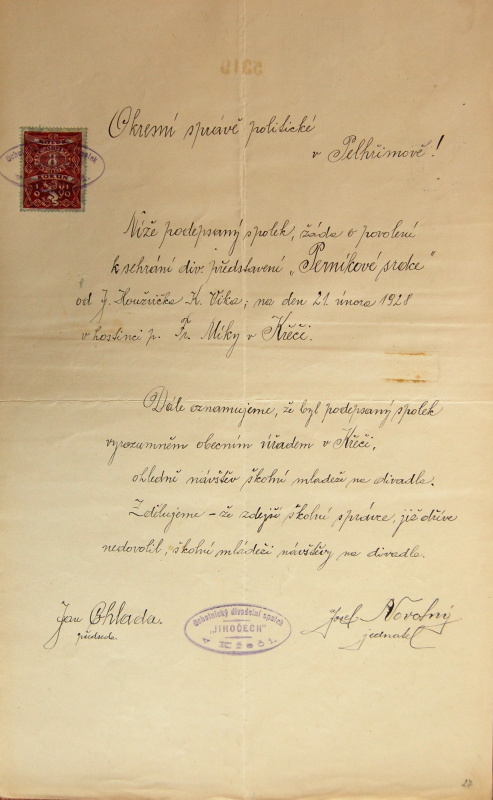 5319
Okresní správě politické
v Pelhřimově!
Níže podepsaný spolek, žádá o povolení
k sehrání div. představení „Perníkové srdce"
od J. Houžvička K. Vika; na den 21. února 1928
v hostinci p. Fr. Míky v Křeči.
Dále oznamujeme, že byl podepsaný spolek
vyrozumněm obecním úřadem v Křeči,
ohledně návštěv školní mládeži na divadla.
Zdělujeme – že zdejší školní správce, již dříve
nedovolil, školní mládeži návštěvy na divadla.
Jan Chlada.
předseda.
Ochotnický divadelní spolek
„JIHOČECH"
v Křeči.
Josef Novotný
jednatel
27